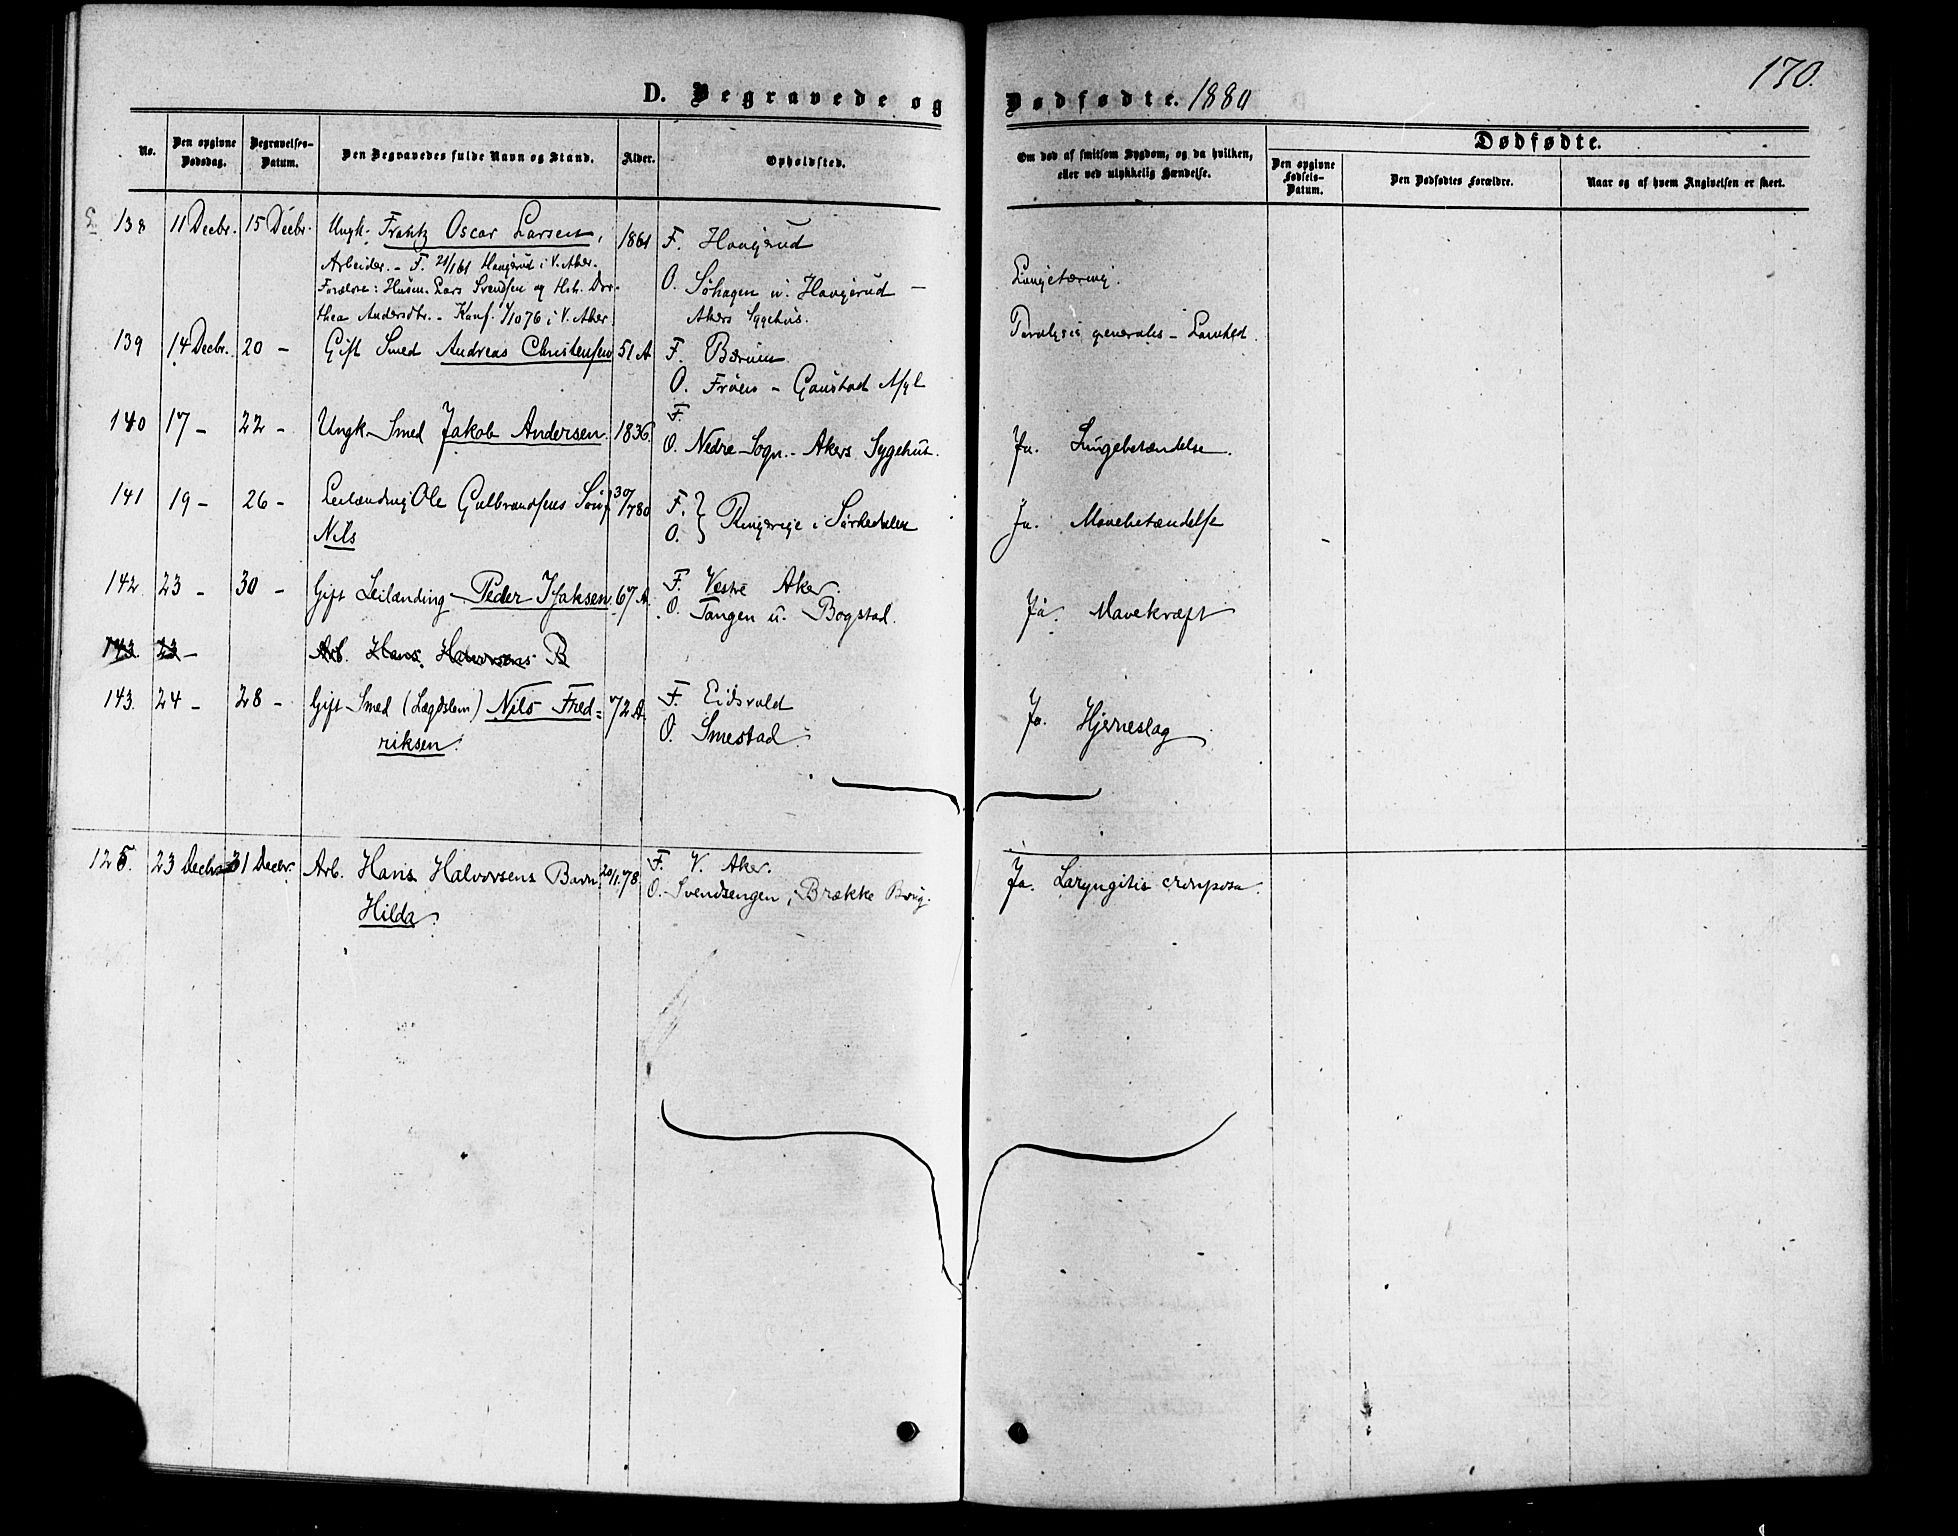 170.
D. Begravede og Dødfødte. 1880
No.
Den opgivne Dødsdag.
Begravelses-Datum.
Den Begravedes fulde Navn og Stand.
Alder.
Opholdssted.
Om død af smitsom Sygdom, og da hvilken,
eller ved ulykkelig Hændelse.
Dødfødte.
Den opgivne Fødsels-Datum.
Den Dødfødtes Forældre.
Naar og af hvem Angivelsen er skeet.
138 11 Decbr. 15 Decbr. Ungk. Frantz Oscar Larsen, 1861 F. Hougerud
Arbeider. - F. 21/1 61 Hougerud i V. Aker.
Forældre: Husm. Lars Svendsen og Hst. Dor-
thea Andersdtr. - Konf. 1/10 76 i V. Aker
O. Søhagen u. Hougerud -
Akers Sygehus.
Lungetæring.
139 14 Decbr. 20 - Gift Smed Andreas Christensen 51 A F. Bærum
O. Frøen - Gaustad Asyl
Paralysis generales - Lamhed.
140 17 - 22 - Ungk. Smed Jakob Andersen. 1836. F.
O. Nedre Sogn. - Akers Sygehus.
Ja. Lungebetændelse.
141 19 - 26 - Leilænding Ole Gulbrandsens Søn 30/7 80 F. } Ringerige i Sørkedalen
Nils O.
Ja. Mavebetændelse
142 23 - 30 - Gift Leilænding Peder Isaksen 67 A. F. Vestre Aker.
O. Tangen u. Bogstad.
Ja. Mavekræft
143. 23 - Arb. Hans Halvorsens B
143. 24 - 28 - Gift Smed (Lægdslem) Nils Fred= 72 A. F. Eidsvold
riksen. O. Smestad.
Ja. Hjerneslag
125. 23 Decbr. 31 Decbr. Arb. Hans Halvorsens Barn 20/1 78. F. V. Aker.
Hilda. O. Svendsengen, Brække Brug.
Ja. Laryngitis crouposa.